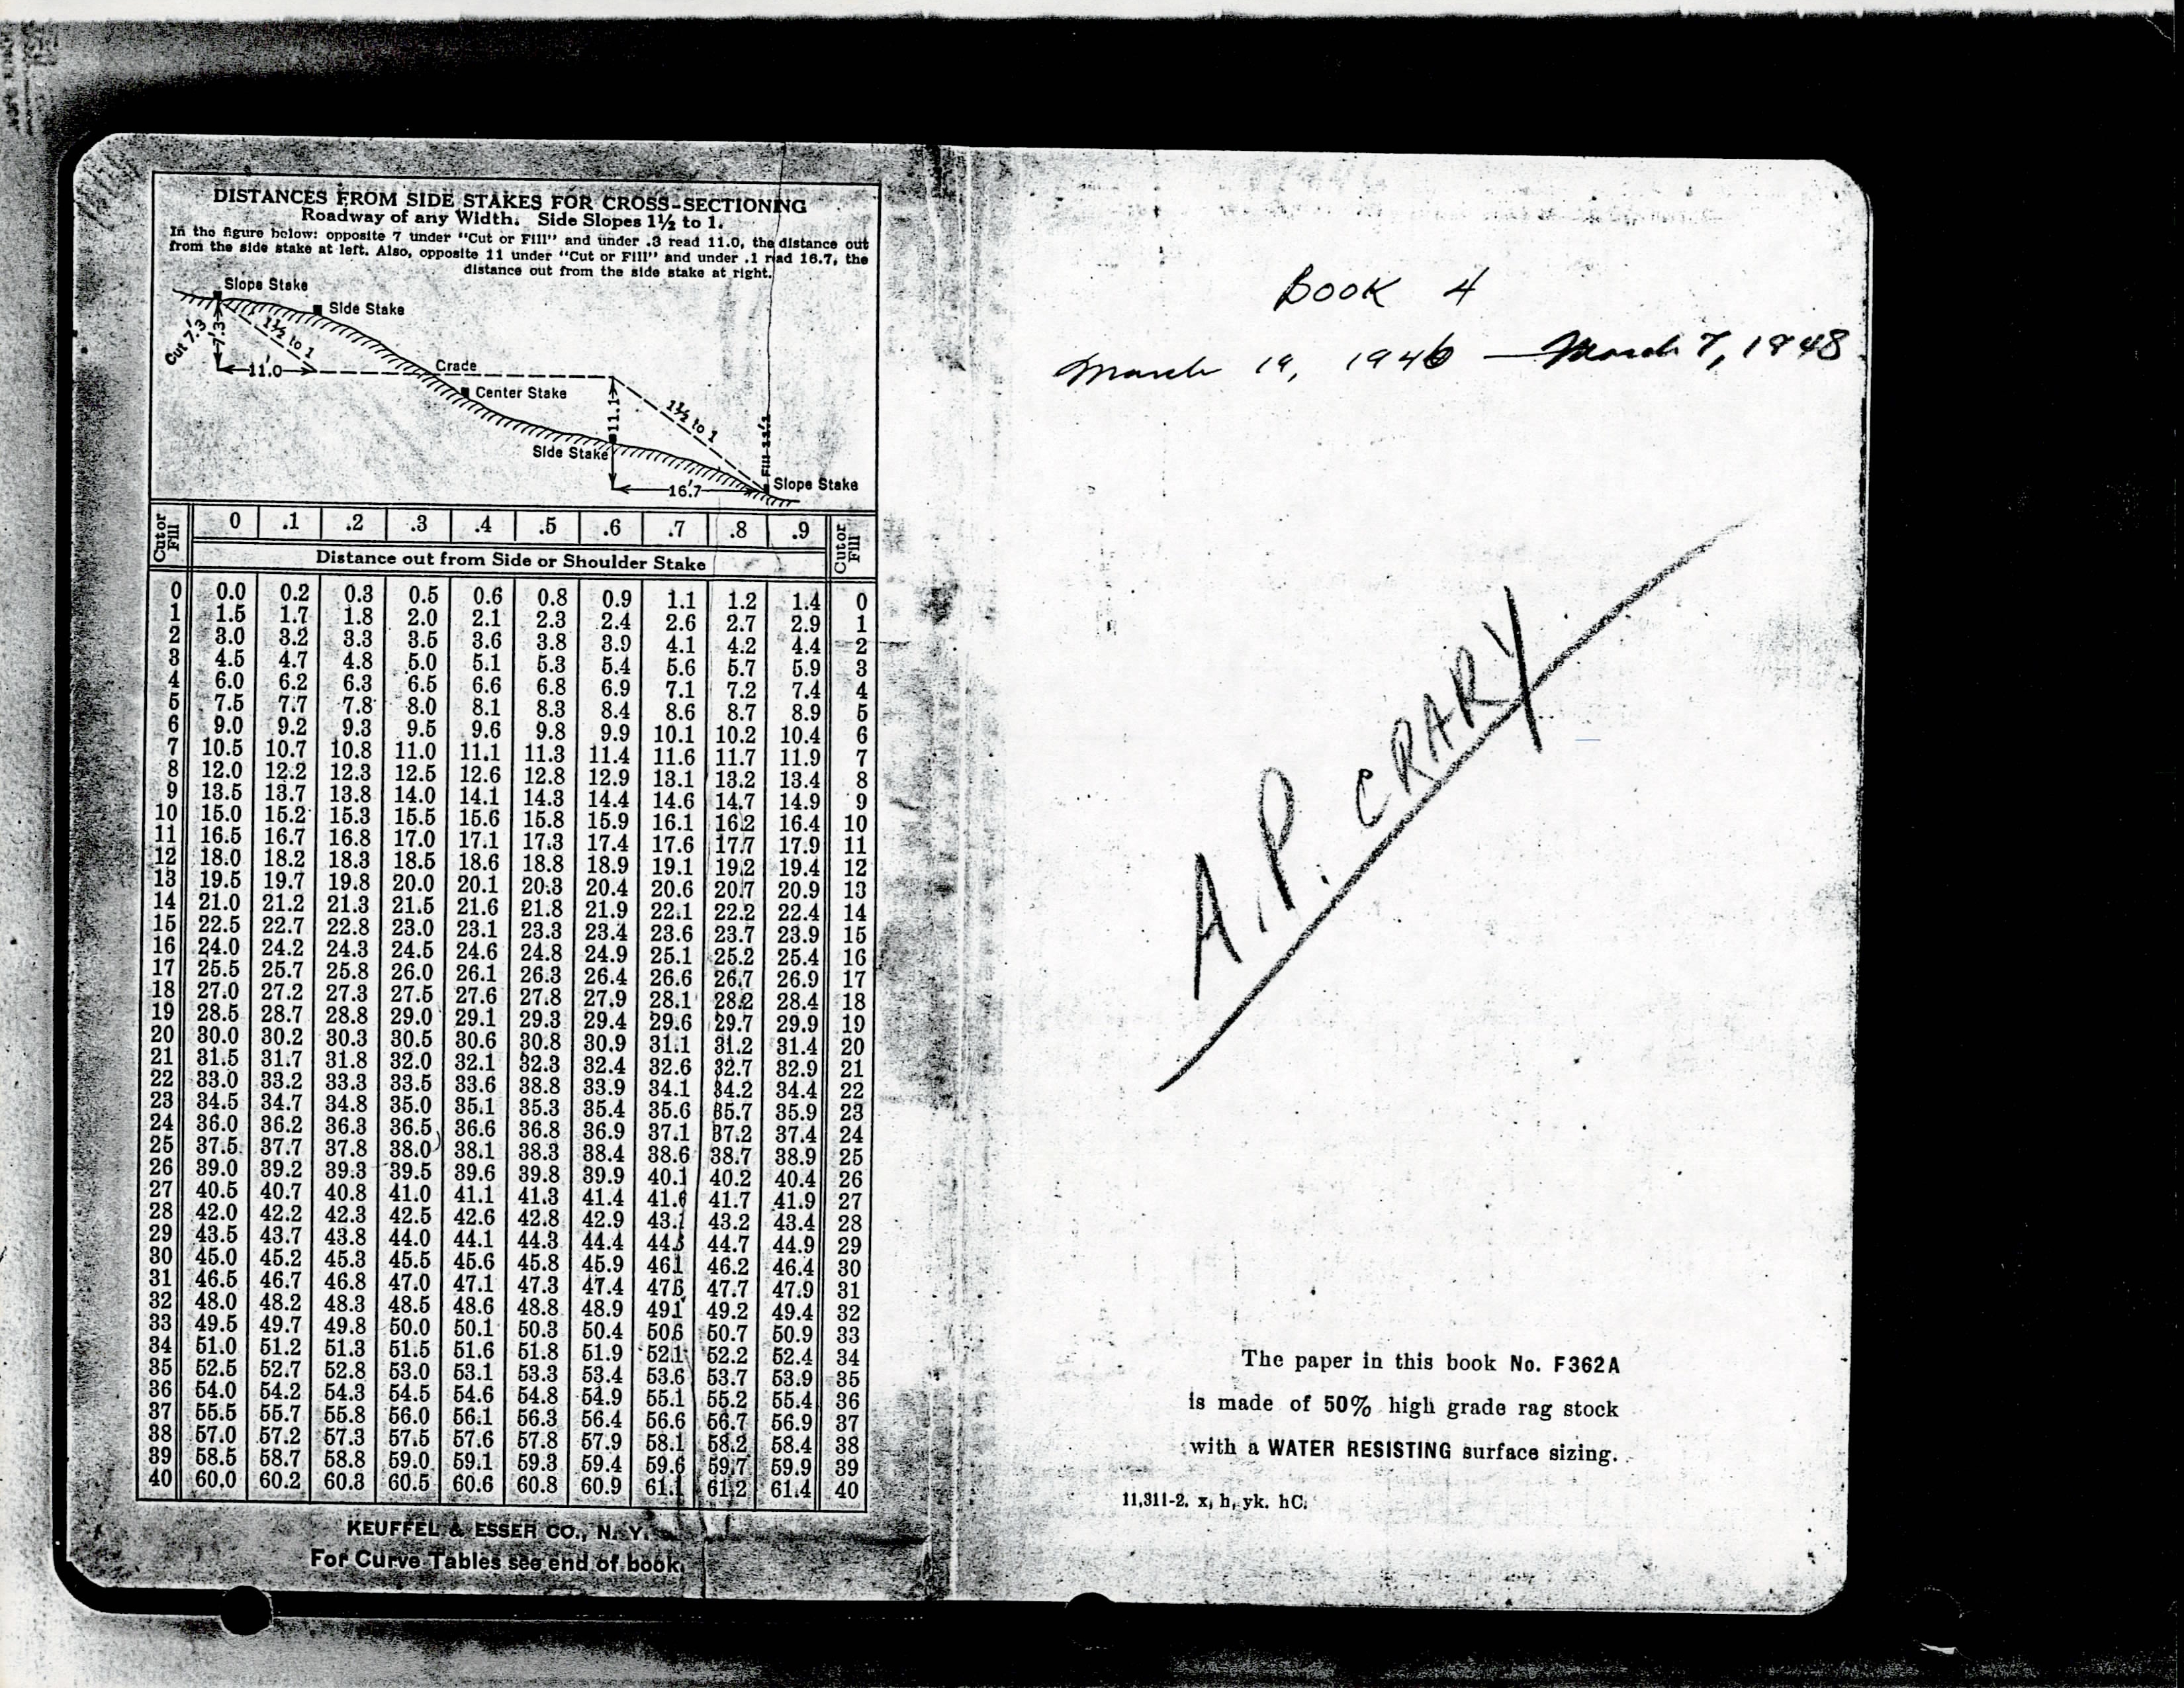 DISTANCES FROM SIDE STAKES FOR CROSS-SECTIONING
Roadway of any Width. Side Slopes 1½ to 1.
In the figure below: opposite 7 under "Cut or Fill" and under .3 read 11.0, the distance out
from the side stake at left. Also, opposite 11 under "Cut or Fill" and under .1 read 16.7, the
distance out from the side stake at right.
Slope Stake
Side Stake
Cut 7.3
7.3
1½ to 1
11.0
Grade
Center Stake
11.1
1½ to 1
Fill 11.1
Side Stake
16.7
Slope Stake
Cut or Fill 0 .1 .2 .3 .4 .5 .6 .7 .8 .9 Cut or Fill
Distance out from Side or Shoulder Stake
0 0.0 0.2 0.3 0.5 0.6 0.8 0.9 1.1 1.2 1.4 0
1 1.5 1.7 1.8 2.0 2.1 2.3 2.4 2.6 2.7 2.9 1
2 3.0 3.2 3.3 3.5 3.6 3.8 3.9 4.1 4.2 4.4 2
3 4.5 4.7 4.8 5.0 5.1 5.3 5.4 5.6 5.7 5.9 3
4 6.0 6.2 6.3 6.5 6.6 6.8 6.9 7.1 7.2 7.4 4
5 7.5 7.7 7.8 8.0 8.1 8.3 8.4 8.6 8.7 8.9 5
6 9.0 9.2 9.3 9.5 9.6 9.8 9.9 10.1 10.2 10.4 6
7 10.5 10.7 10.8 11.0 11.1 11.3 11.4 11.6 11.7 11.9 7
8 12.0 12.2 12.3 12.5 12.6 12.8 12.9 13.1 13.2 13.4 8
9 13.5 13.7 13.8 14.0 14.1 14.3 14.4 14.6 14.7 14.9 9
10 15.0 15.2 15.3 15.5 15.6 15.8 15.9 16.1 16.2 16.4 10
11 16.5 16.7 16.8 17.0 17.1 17.3 17.4 17.6 17.7 17.9 11
12 18.0 18.2 18.3 18.5 18.6 18.8 18.9 19.1 19.2 19.4 12
13 19.5 19.7 19.8 20.0 20.1 20.3 20.4 20.6 20.7 20.9 13
14 21.0 21.2 21.3 21.5 21.6 21.8 21.9 22.1 22.2 22.4 14
15 22.5 22.7 22.8 23.0 23.1 23.3 23.4 23.6 23.7 23.9 15
16 24.0 24.2 24.3 24.5 24.6 24.8 24.9 25.1 25.2 25.4 16
17 25.5 25.7 25.8 26.0 26.1 26.3 26.4 26.6 26.7 26.9 17
18 27.0 27.2 27.3 27.5 27.6 27.8 27.9 28.1 28.2 28.4 18
19 28.5 28.7 28.8 29.0 29.1 29.3 29.4 29.6 29.7 29.9 19
20 30.0 30.2 30.3 30.5 30.6 30.8 30.9 31.1 31.2 31.4 20
21 31.5 31.7 31.8 32.0 32.1 32.3 32.4 32.6 32.7 32.9 21
22 33.0 33.2 33.3 33.5 33.6 38.8 33.9 34.1 34.2 34.4 22
23 34.5 34.7 34.8 35.0 35.1 35.3 35.4 35.6 35.7 35.9 23
24 36.0 36.2 36.3 36.5 36.6 36.8 36.9 37.1 37.2 37.4 24
25 37.5 37.7 37.8 38.0 38.1 38.3 38.4 38.6 38.7 38.9 25
26 39.0 39.2 39.3 39.5 39.6 39.8 39.9 40.1 40.2 40.4 26
27 40.5 40.7 40.8 41.0 41.1 41.3 41.4 41.6 41.7 41.9 27
28 42.0 42.2 42.3 42.5 42.6 42.8 42.9 43.1 43.2 43.4 28
29 43.5 43.7 43.8 44.0 44.1 44.3 44.4 44.6 44.7 44.9 29
30 45.0 45.2 45.3 45.5 45.6 45.8 45.9 46.1 46.2 46.4 30
31 46.5 46.7 46.8 47.0 47.1 47.3 47.4 47.6 47.7 47.9 31
32 48.0 48.2 48.3 48.5 48.6 48.8 48.9 49.1 49.2 49.4 32
33 49.5 49.7 49.8 50.0 50.1 50.3 50.4 50.6 50.7 50.9 33
34 51.0 51.2 51.3 51.5 51.6 51.8 51.9 52.1 52.2 52.4 34
35 52.5 52.7 52.8 53.0 53.1 53.3 53.4 53.6 53.7 53.9 35
36 54.0 54.2 54.3 54.5 54.6 54.8 54.9 55.1 55.2 55.4 36
37 55.5 55.7 55.8 56.0 56.1 56.3 56.4 56.6 56.7 56.9 37
38 57.0 57.2 57.3 57.5 57.6 57.8 57.9 58.1 58.2 58.4 38
39 58.5 58.7 58.8 59.0 59.1 59.3 59.4 59.6 59.7 59.9 39
40 60.0 60.2 60.3 60.5 60.6 60.8 60.9 61.1 61.2 61.4 40
KEUFFEL & ESSER CO., N. Y.
For Curve Tables see end of book.
BOOK 4
March 19, 1946 — March 7, 1948
A.P. CRARY
The paper in this book No. F362A
is made of 50% high grade rag stock
with a WATER RESISTING surface sizing.
11,311-2. x, h, yk. hC.